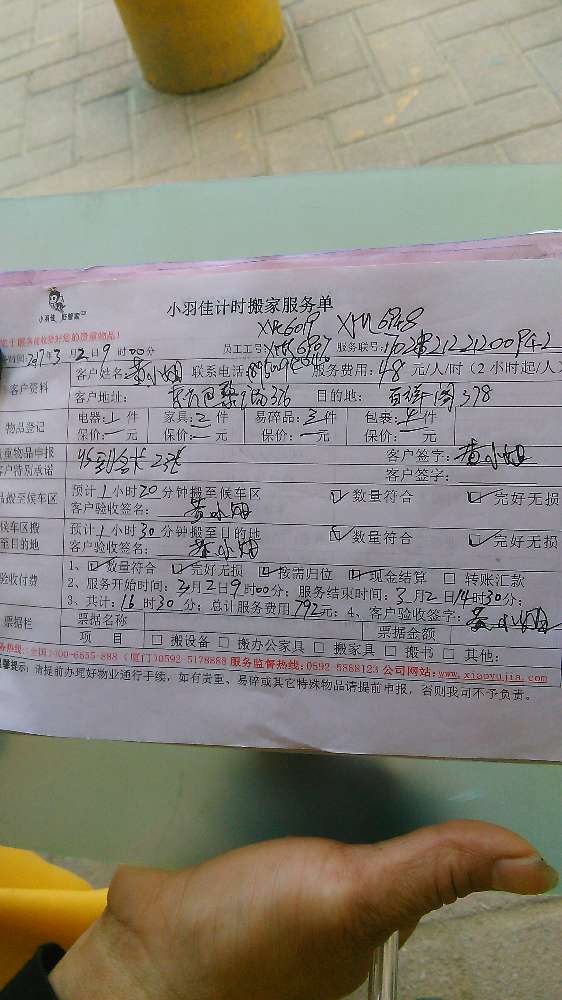 小羽佳 好管家
小羽佳计时搬家服务单
XM6019 XM6848
时间:2017年3月2日9时00分 员工工号: 服务联号:
客户资料 客户姓名:黄小姐 联系电话: 服务费用:48元/人/时(2小时起/人)
客户地址: 目的地: 378
物品登记 电器:1件 家具:2件 易碎品:3件 包裹:4件
保价:一元 保价:一元 保价:一元 保价:一元
贵重物品申报 客户签字:黄小姐
客户特别承诺 客户签字:
品搬至候车区 预计1小时20分钟搬至候车区 数量符合 完好无损
客户验收签名: 黄小姐
候车区搬至目的地 预计1小时30分钟搬至目的地 数量符合 完好无损
客户验收签名: 黄小姐
验收付费 1、数量符合 完好无损 按需归位 现金结算 转账汇款
2、服务开始时间:3月2日9时00分;服务结束时间:3月2日14时30分;
3、共计:16时30分;总计服务费用792元;4、客户验收签字:黄小姐
票据栏 票据名称 票据金额
项目 搬设备 搬办公家具 搬家具 搬书 其他:
务热线:(全国)400-6655-888 (厦门)0592-5178888 服务监督热线:0592-5888123 公司网站:www.xiaoyujia.com
温馨提示:请提前办理好物业通行手续,如有贵重、易碎或其它特殊物品请提前申报,否则我司不予负责。